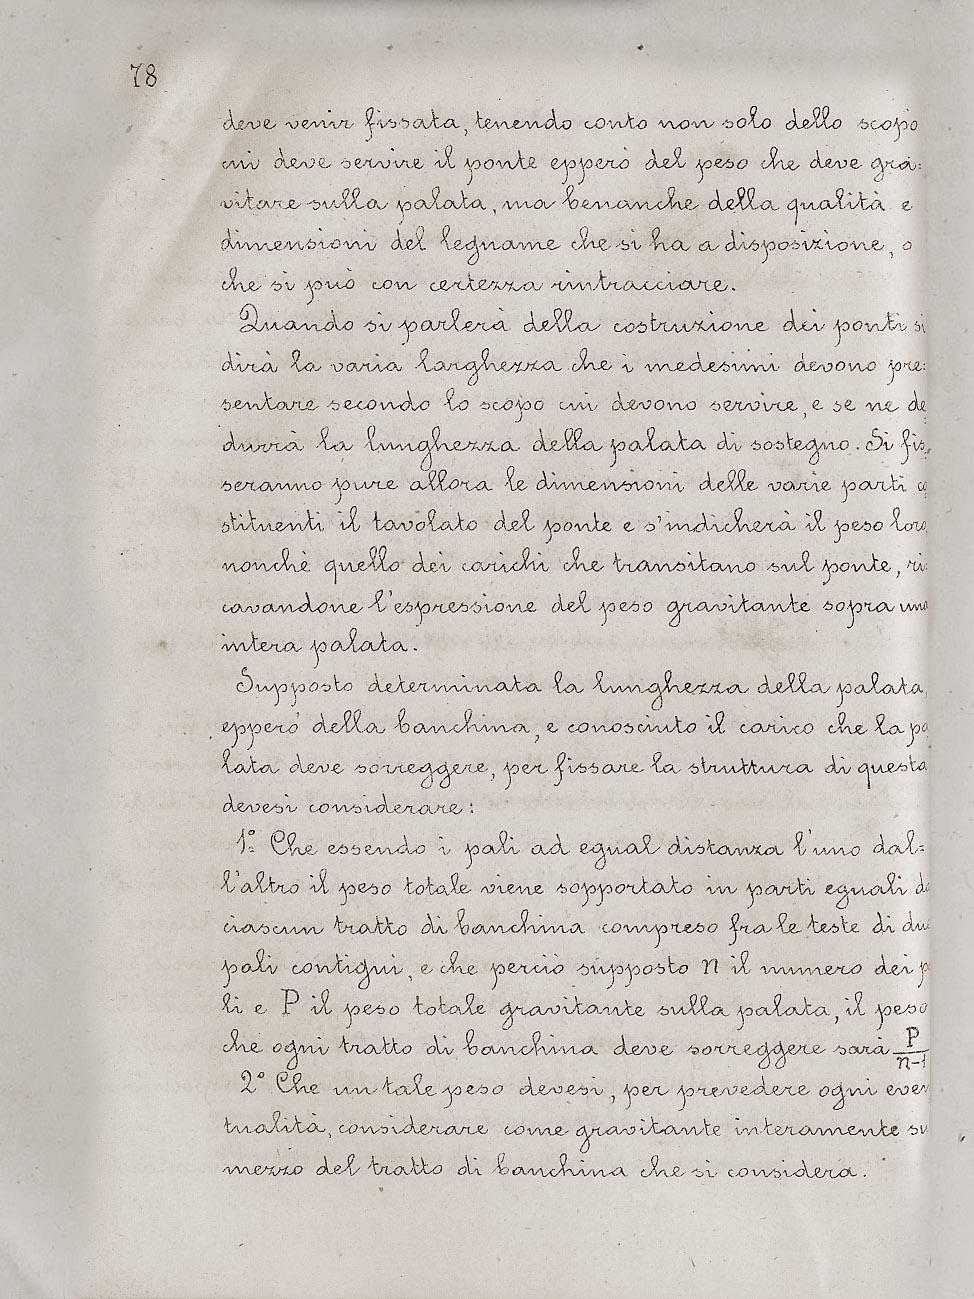 78
deve venir fissata, tenendo conto non solo dello scopo
cui deve servire il ponte epperò del peso che deve gra=
vitare sulla palata, ma benanche della qualità e
dimensioni del legname che si ha a disposizione, o
che si può con certezza rintracciare.
Quando si parlerà della costruzione dei ponti si
dirà la varia larghezza che i medesimi devono pre=
sentare secondo lo scopo cui devono servire, e se ne de
durrà la lunghezza della palata di sostegno. Si fis=
seranno pure allora le dimensioni delle varie parti co
stituenti il tavolato del ponte e s'indicherà il peso loro,
nonchè quello dei carichi che transitano sul ponte, ri=
cavandone l'espressione del peso gravitante sopra una
intera palata.
Supposto determinata la lunghezza della palata,
epperò della banchina, e conosciuto il carico che la pa
lata deve sorreggere, per fissare la struttura di questa
devesi considerare:
1º Che essendo i pali ad egual distanza l'uno dal=
l'altro il peso totale viene sopportato in parti eguali da
ciascun tratto di banchina compreso fra le teste di due
pali contigui, e che perciò supposto n il numero dei p
li e P il peso totale gravitante sulla palata, il peso
che ogni tratto di banchina deve sorreggere sarà P/n-1
2º Che un tale peso devesi, per prevedere ogni even
tualità, considerare come gravitante interamente su
mezzo del tratto di banchina che si considera.